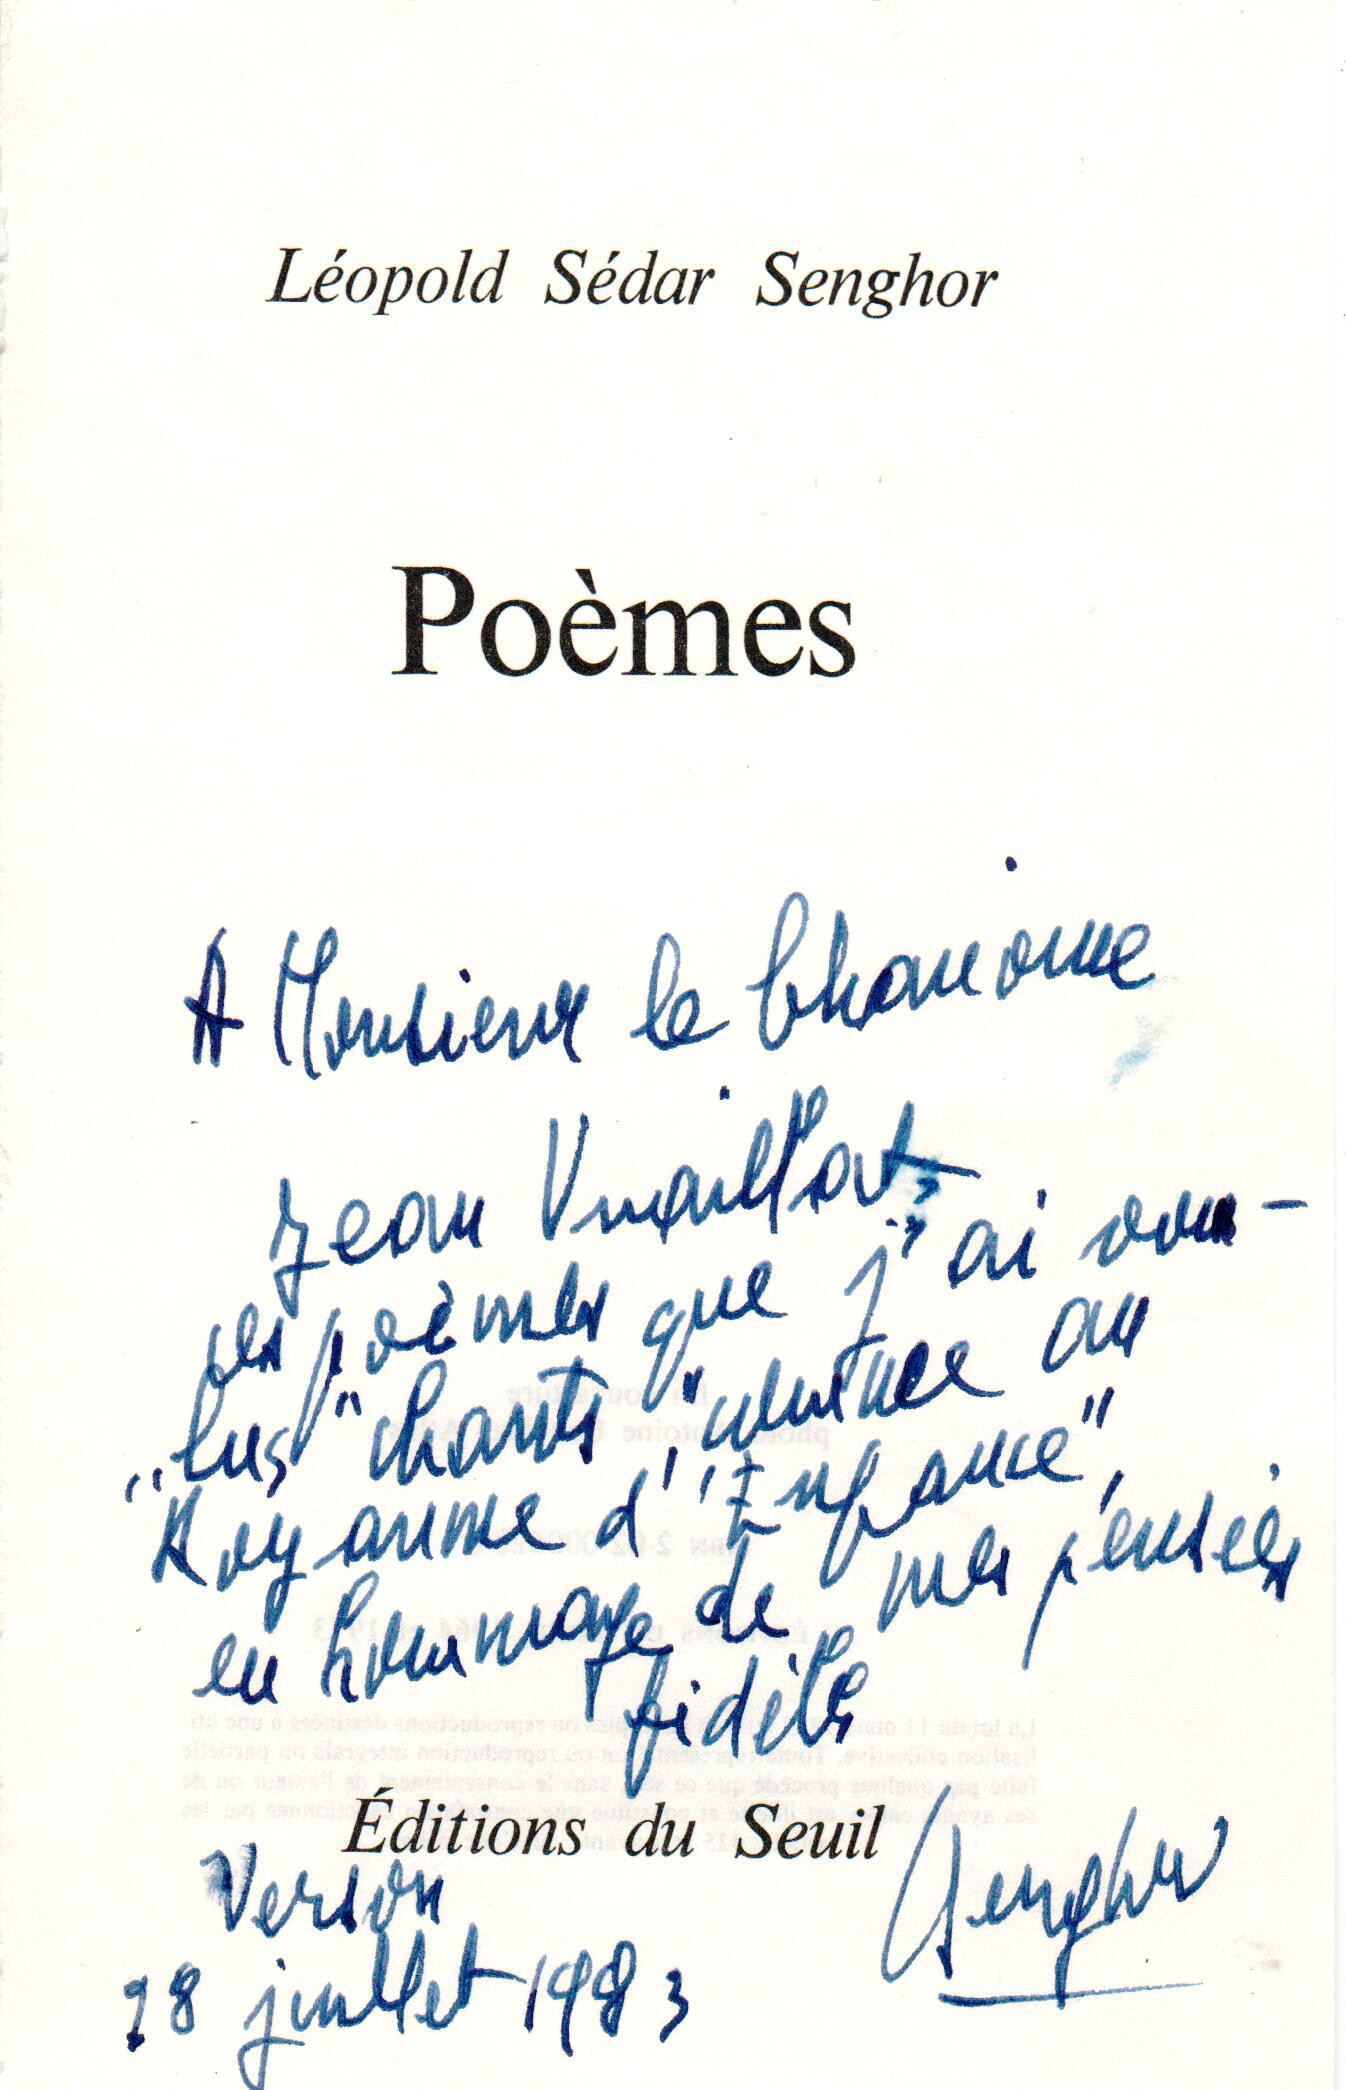 Léopold Sédar Senghor
Poèmes
A Monsieur le Chanoine
Jean Vuaillat,
ces poèmes que j'ai vou-
lus "chants", comme au
"Royaume d'Enfance",
en hommage de mes pensées
fidèles
Éditions du Seuil
Senghor
Verson
28 juillet 1983